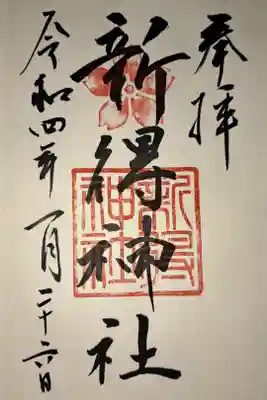 奉拝
新得神社
新得神社
令和四年一月二十六日